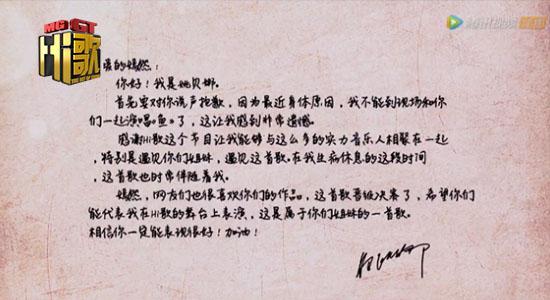 MG GT
Hi歌
爱的嫣然：
你好！我是姚贝娜。
首先要对你说声抱歉，因为最近身体原因，我不能到现场和你
们一起演唱《鱼》了，这让我感到非常遗憾。
感谢Hi歌这个节目让我能够与这么多的实力音乐人相聚在一起
，特别是遇见你们姐妹，遇见这首歌。在我生病休息的这段时间
，这首歌也时常伴随着我。
嫣然，网友们也很喜欢你们的作品，这首歌晋级决赛了，希望你们
能代表我在Hi歌的舞台上表演，这是属于你们姐妹的一首歌。
相信你一定能表现很好！加油！